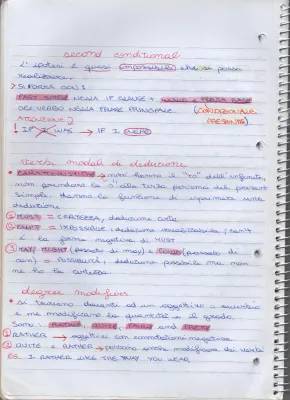 second conditional
L'ipotesi è quasi impossibile che si possa
realizzare.
> SI FORMA CON:
PAST SIMPLE NELLA IF CLAUSE + WOULD E FORMA BASE
DEL VERBO NELLA FRASE PRINCIPALE (CONDIZIONALE
ATTENZIONE? PRESENTE)
! IF I WAS → IF I WERE
Verbi modali di deduzione
CARATTERISTICHE → non hanno il "to" dell'infinito,
non prendono la s alla terza persona del present
simple. Hanno la funzione di esprimere una
deduzione
① MUST = CERTEZZA, deduzione certa
② CAN'T = IMPOSSIBILE, deduzione
È la forma negativa di MUST
③ MAY/MIGHT (passato di may) e COULD (passato di
can) = POSSIBILITÀ, deduzione possibile ma non
ne ho la certezza
degree modifiers
• si trovano davanti ad un aggettivo o avverbio
e ne modificano la quantità e il grado.
Sono: RATHER, QUITE, FAIRLY and PRETTY
① RATHER → aggettivi con connotazione negativa
② QUITE e RATHER → possono anche modificare dei verbi
ES. I RATHER LIKE THE WAY YOU WEAR